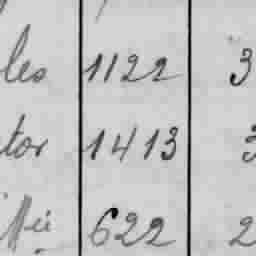 les 1122 3
tor 1413 3
622 2